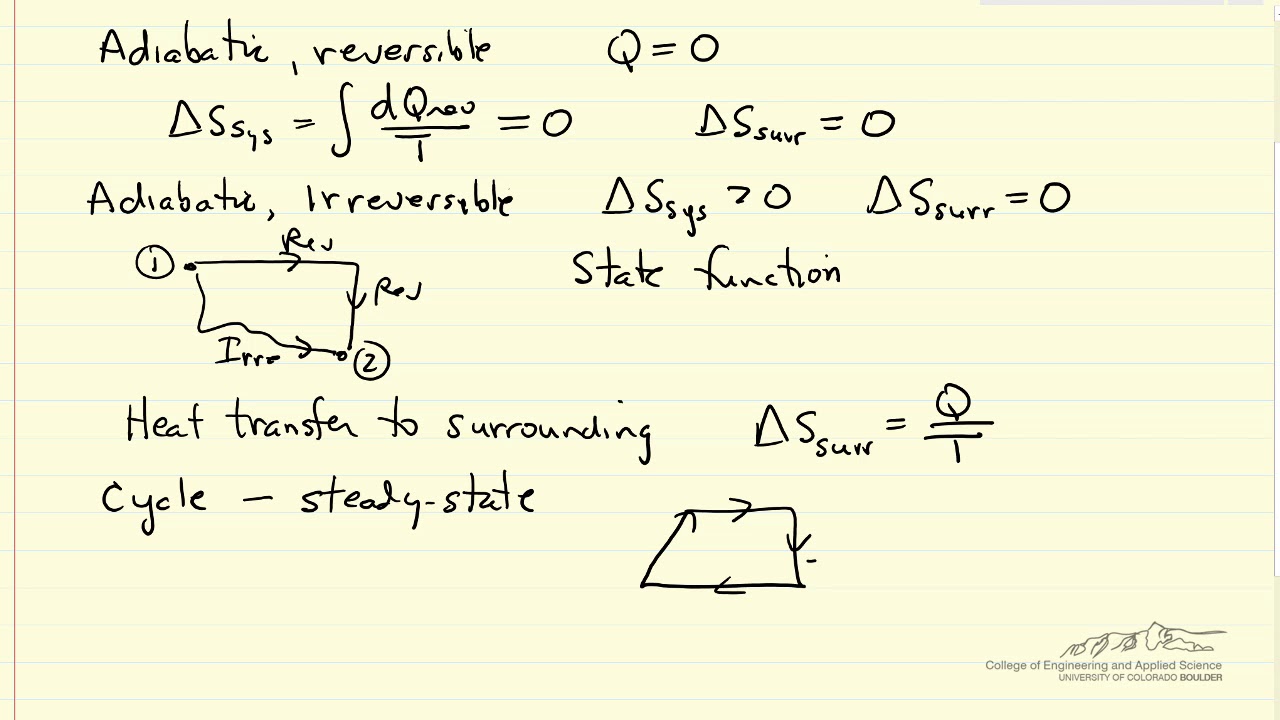 Adiabatic, reversible Q = 0
ΔS_sys = ∫ dQ_rev/T = 0 ΔS_surr = 0
Adiabatic, Irreversible ΔS_sys > 0 ΔS_surr = 0
① Rev State function
Rev
Irre ②
Heat transfer to surrounding ΔS_surr = Q/T
Cycle – steady-state
College of Engineering and Applied Science
UNIVERSITY OF COLORADO BOULDER